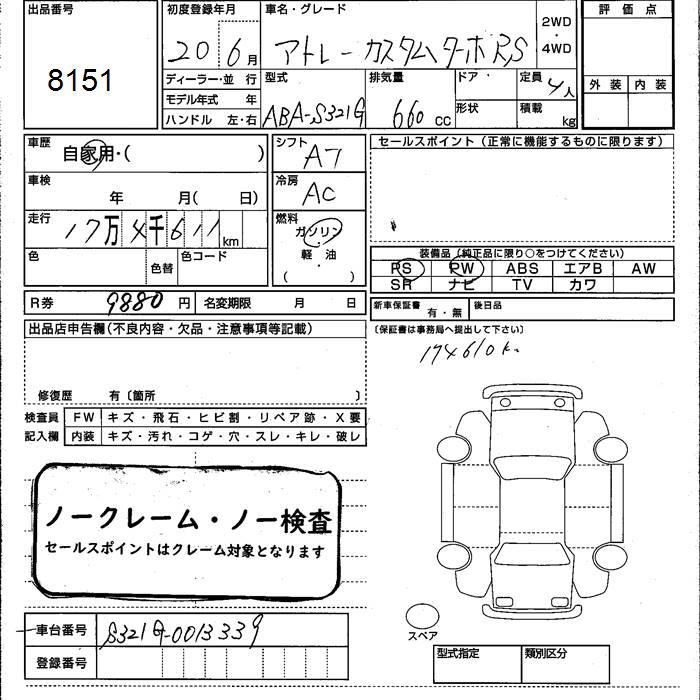 出品番号
8151
初度登録年月
20 6月
車名・グレード
アトレーカスタムターボRS
2WD
・
4WD
評価点
外装 内装
ディーラー・並行
モデル年式 年
ハンドル 左・右
型式
ABA-S321G
排気量
660cc
ドア
形状
定員
4人
積載
kg
車歴
自家用・( )
シフト
AT
セールスポイント(正常に機能するものに限ります)
車検
年 月( 日)
冷房
AC
走行
17万4千611km
燃料
ガソリン
・
軽・油
( )
色
色替
色コード
装備品(純正品に限り○をつけてください)
PS PW ABS エアB AW
SR ナビ TV カワ
R券 9880円 名変期限 月 日
新車保証書 有・無 後日品
(保証書は事務局へ提出して下さい)
174610k
出品店申告欄(不良内容・欠品・注意事項等記載)
修復歴 有〔箇所 〕
検査員 FW キズ・飛石・ヒビ割・リペア跡・X要
記入欄 内装 キズ・汚れ・コゲ・穴・スレ・キレ・破レ
ノークレーム・ノー検査
セールスポイントはクレーム対象となります
車台番号 S321G-0013339
登録番号
スペア
型式指定 類別区分